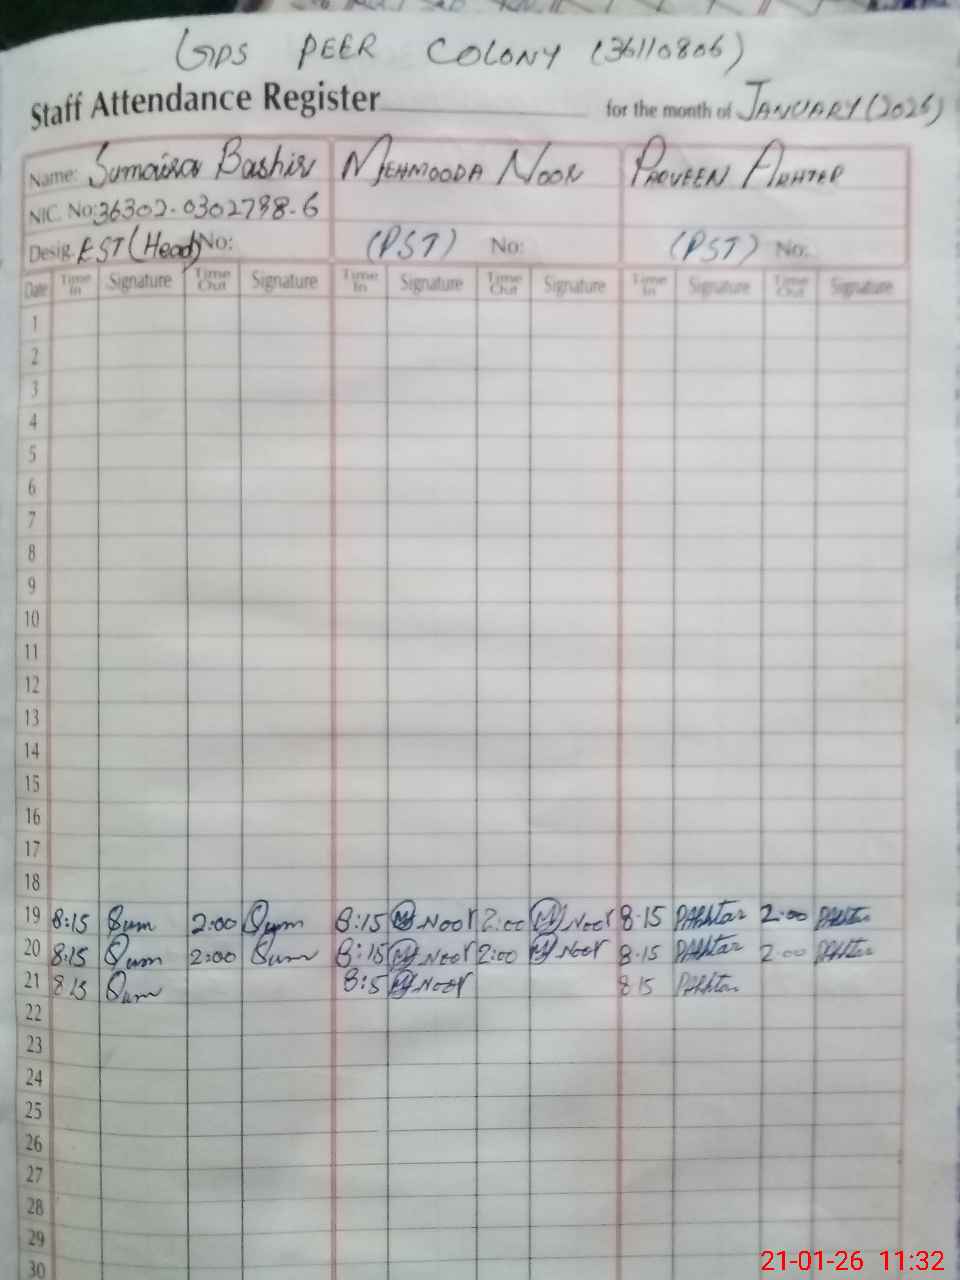 GPS PEER COLONY (36110806)
Staff Attendance Register for the month of JANUARY (2026)
Name: Sumaira Bashir MEHMOODA NOOR PARVEEN AKHTER
NIC. No: 36302-0302798-6
Desig. EST (Head) No: (PST) No: (PST) No:
Date Time In Signature Time Out Signature Time In Signature Time Out Signature Time In Signature Time Out Signature
1
2
3
4
5
6
7
8
9
10
11
12
13
14
15
16
17
18
19 8:15 Sum 2:00 Sum 8:15 M Noor 2:00 M Noor 8:15 PAkhtar 2:00 PAkhtar
20 8:15 Sum 2:00 Sum 8:15 M Noor 2:00 M Noor 8:15 PAkhtar 2:00 PAkhtar
21 8 15 Sum 8:5 M Noor 8 15 PAkhtar
22
23
24
25
26
27
28
29
30
21-01-26 11:32